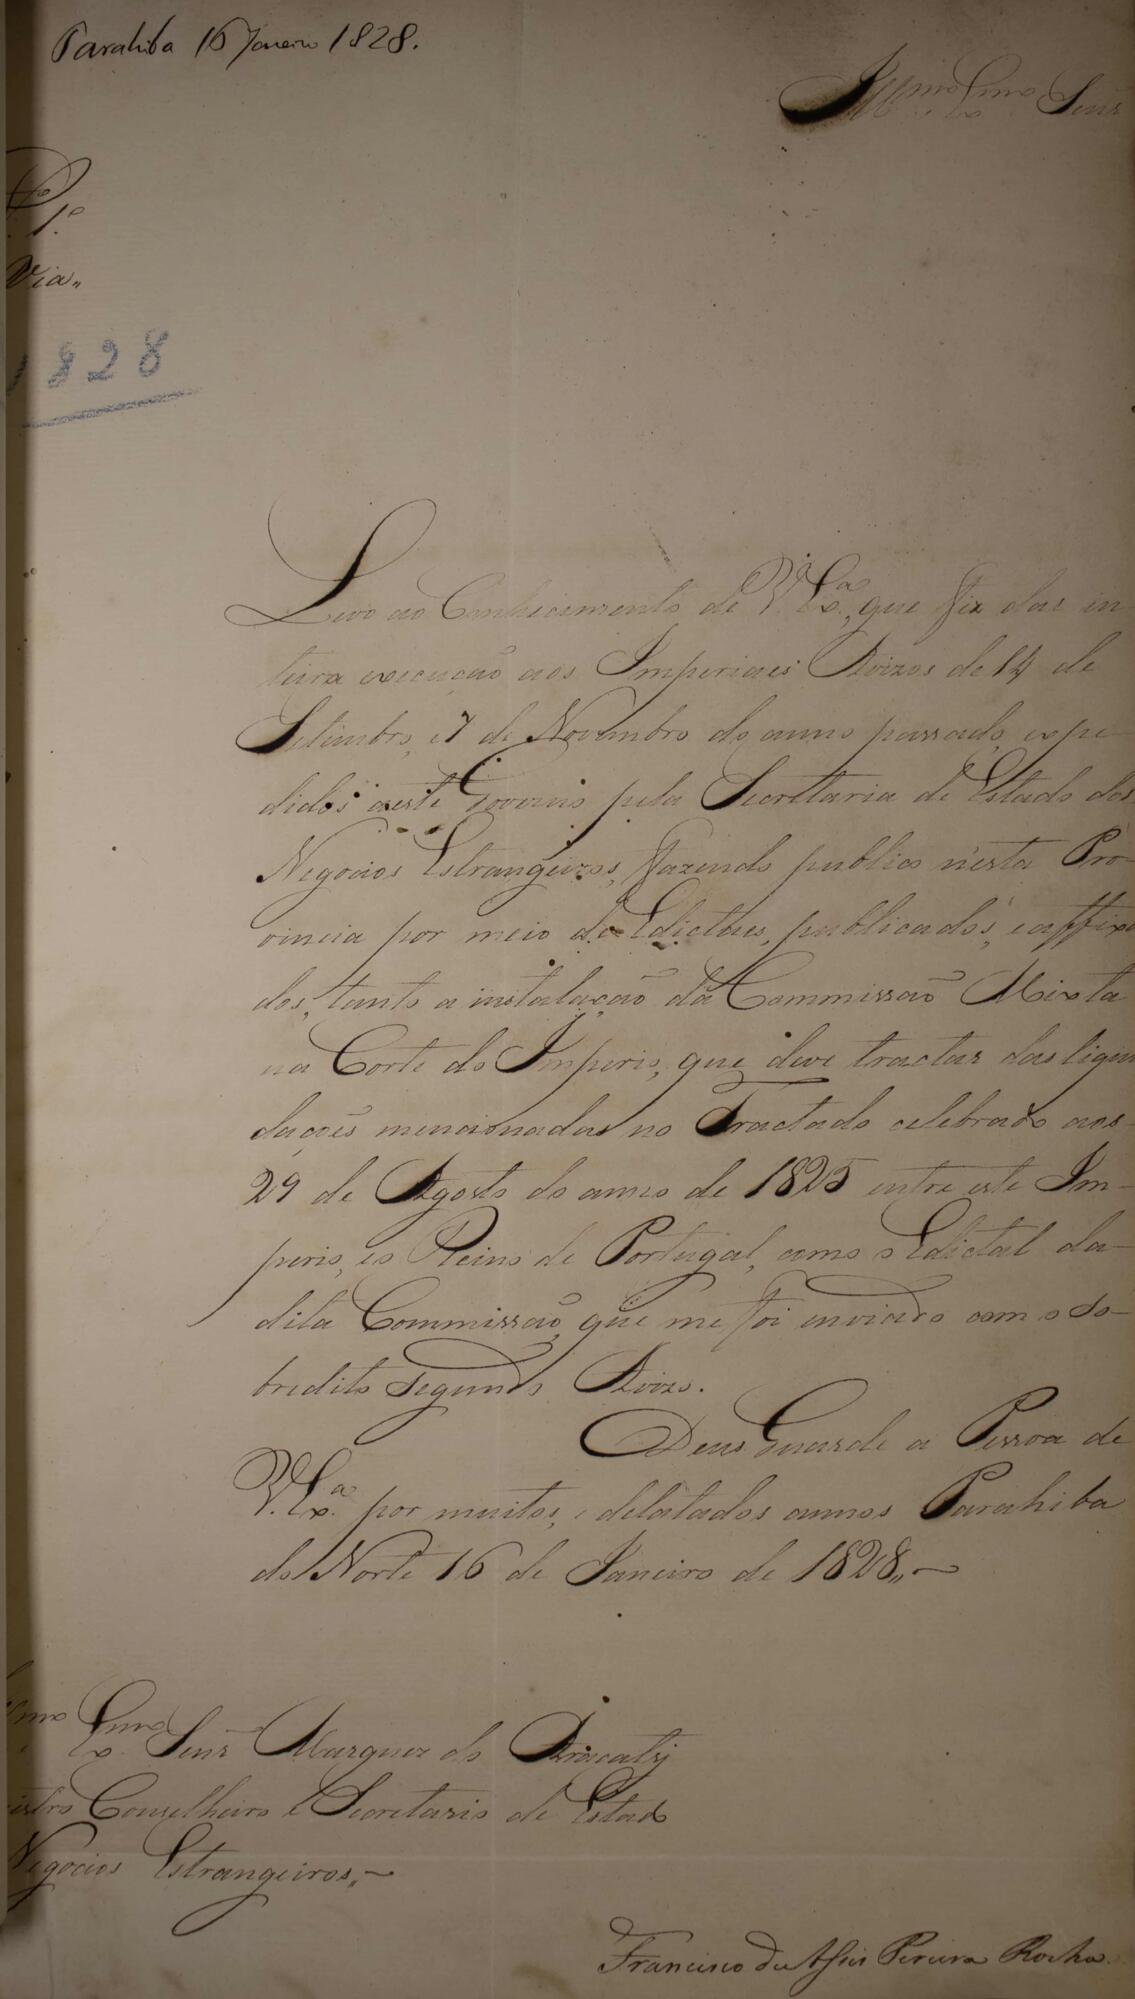 Parahiba 16 Janeiro 1828.
Illmo. e Exmo. Senr.
1ª
Via„
1828
Levo ao Conhecimento de V. Exª., que fiz dar in-
teira execução aos Imperiaes Avizos de 14 de
Setembro, e 7 de Novembro do anno passado, expe-
didos a este Governo pela Secretaria de Estado dos
Negocios Estrangeiros, fazendo publico n'esta Pro-
vincia por meio de Edictaes, publicados, e affixa
dos, tanto a instalação da Commissão Mixta
na Corte do Imperio, que deve tractar das liqui
dações mencionadas no Tractado celebrado aos
29 de Agosto do anno de 1825 entre este Im-
perio, e o Reino de Portugal, como o Edictal da-
dita Commissão, que me foi enviado com o so-
bredito segundo Avizo.
Deus Guarde a Pessoa de
V. Exª. por muitos, e delatados annos Parahiba
do Norte 16 de Janeiro de 1828„
mo. Exmo. Senr. Marquez do Aracaty
istro Conselheiro e Secretario de Estado
Negocios Estrangeiros„
Francisco de Assis Pereira Rocha